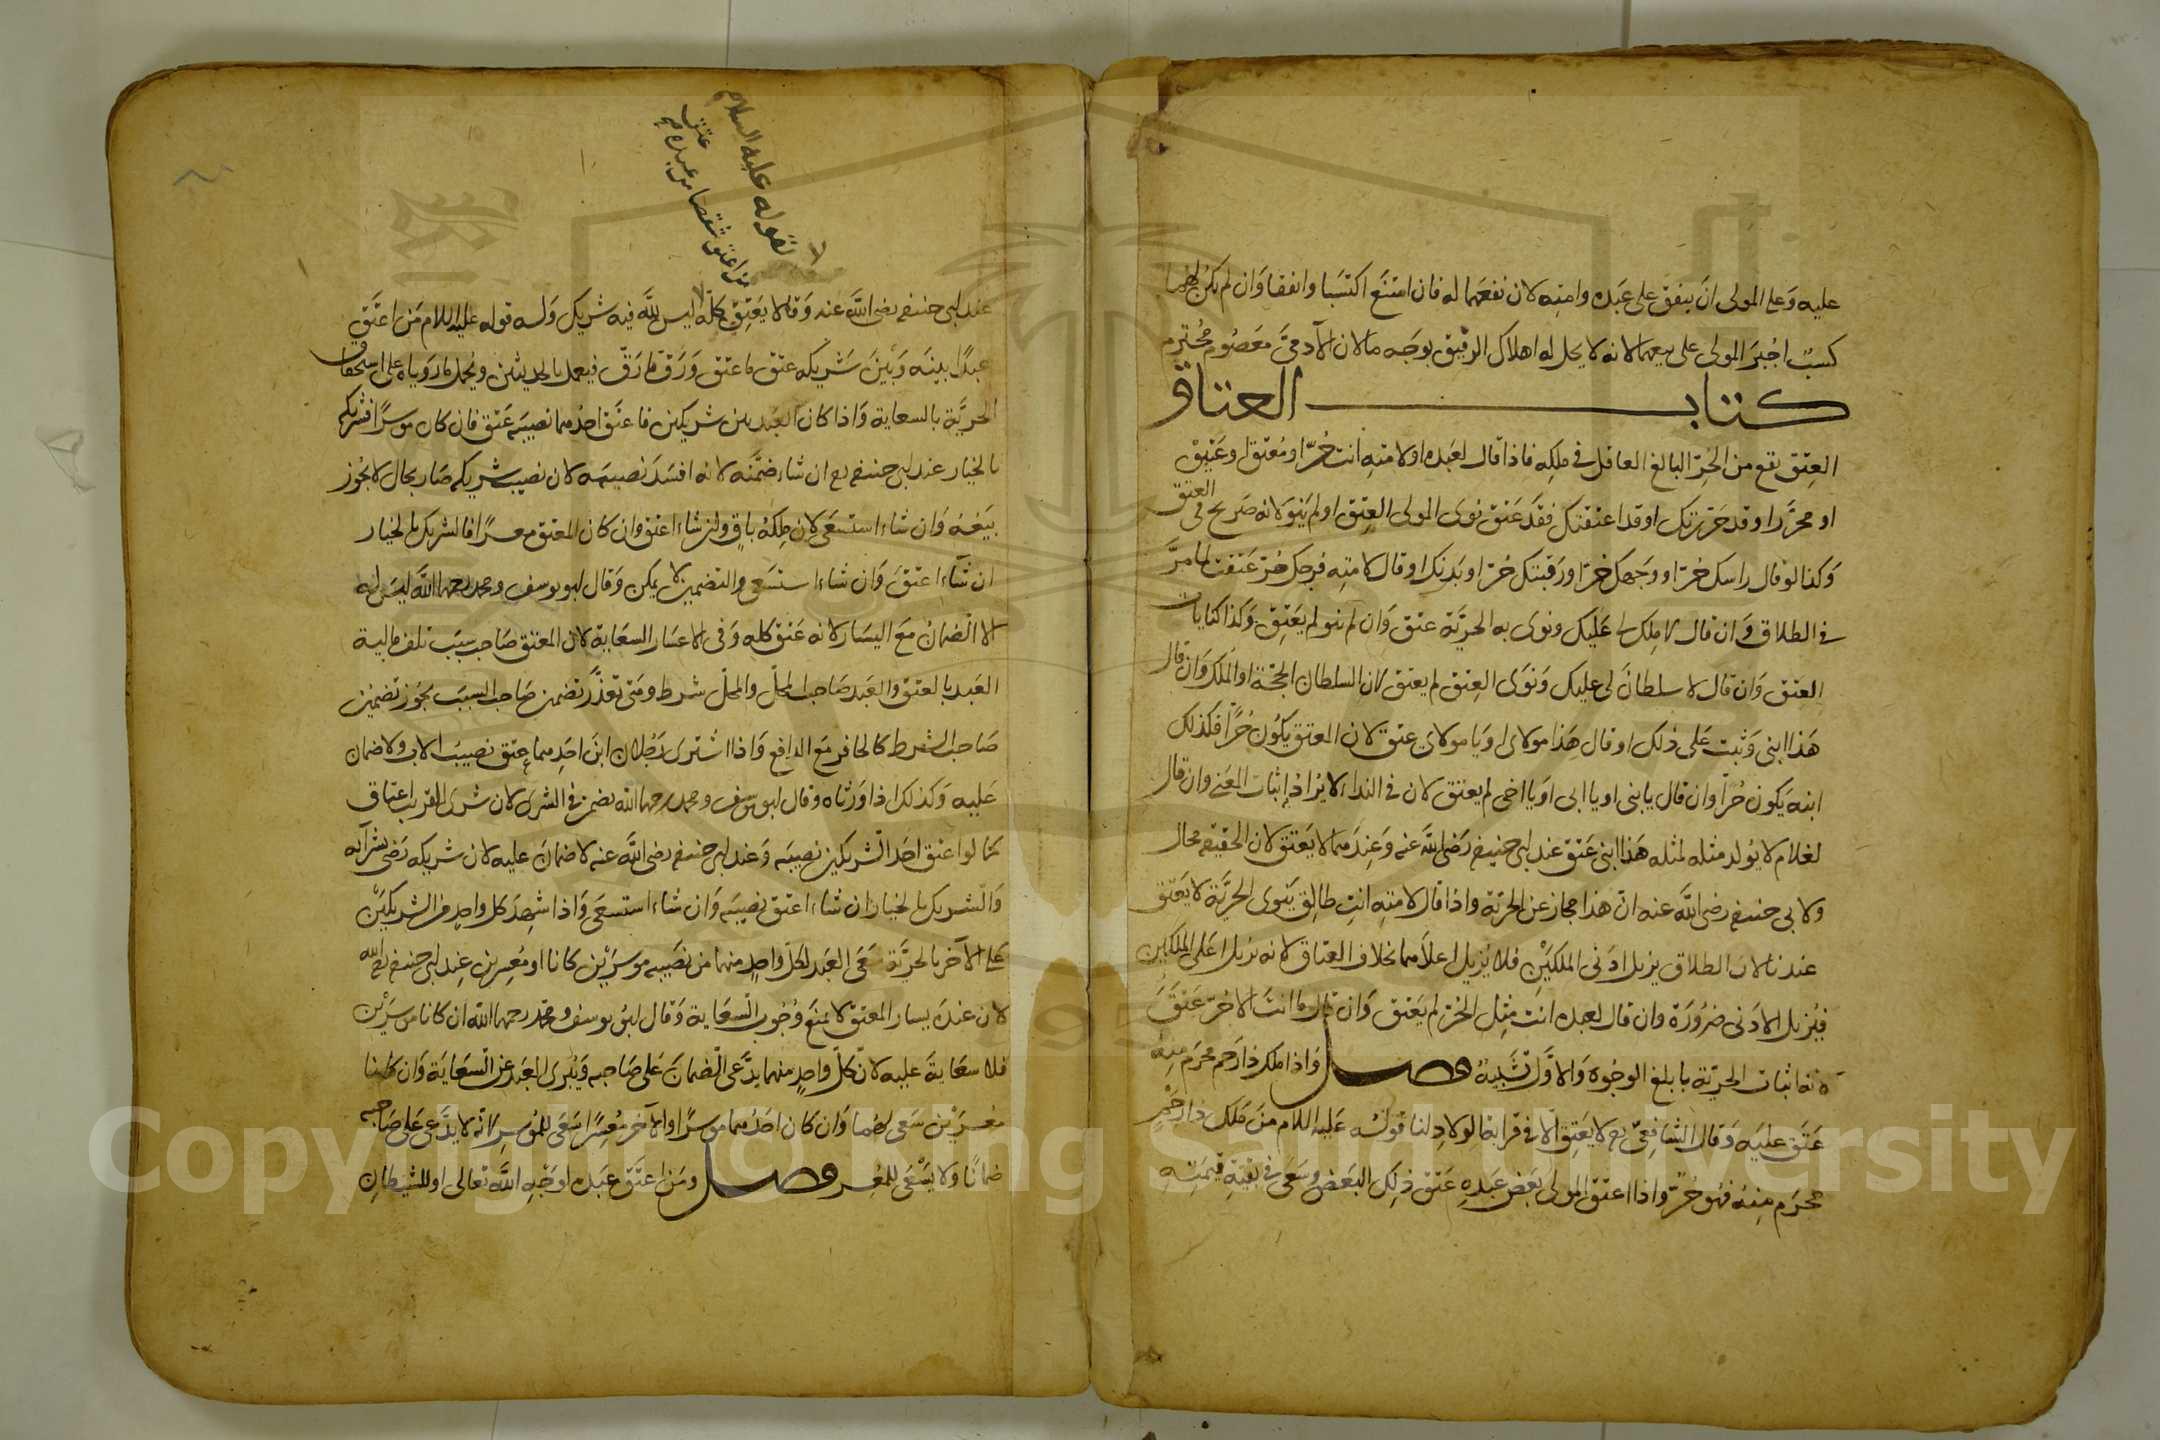 عليه وعلى المولى ان ينفق على عبده وامته لان نفعهما له فان امتنع اكتسبا وانفقا وان لم يكن لهما
كسب اجبر المولى على بيعهما لانه لا يحل له اهلاك الرقيق بوجه ما لان الآدمي معصوم محترم
كتاب العتاق
العتق يقع من الحر البالغ العاقل في ملكه فاذا قال لعبده او لامته انت حر او معتق او عتيق
او محرر او قد حررتك او قد اعتقتك فقد عتق نوى المولى العتق او لم ينو لانه صريح في العتق
وكذا لو قال راسك حر او وجهك حر او رقبتك حر او بدنك او قال لامته فرجك حر عتقت لما مر
في الطلاق وان قال لا ملك لي عليك ونوى به الحرية عتق وان لم ينو لم يعتق وكذا كنايات
العتق وان قال لا سلطان لي عليك ونوى العتق لم يعتق لان السلطان الحجة او الملك وان قال
هذا ابني وثبت على ذلك او قال هذا مولاي او يا مولاي عتق لان المعتق يكون حرا فكذلك
ابنه يكون حرا وان قال يا بني او يا ابي او يا اخي لم يعتق لان في النداء لا يراد اثبات المعنى وان قال
لغلام لا يولد مثله لمثله هذا ابني عتق عند ابي حنيفه رضي الله عنه وعندهما لا يعتق لان الحقيقه محال
ولابي حنيفه رضي الله عنه ان هذا مجاز عن الحرية واذا قال لامته انت طالق ينوى الحرية لا يعتق
عندنا لان الطلاق يزيل ادنى الملكين فلا يزيل اعلاهما بخلاف العتاق لانه يزيل اعلى الملكين
فيزيل الادنى ضرورة وان قال لعبده انت مثل الحر لم يعتق وان قال ما انت الا حر عتق
لانه اثبات الحرية بابلغ الوجوه والاول تشبيه فصل واذا ملك ذا رحم محرم منه
عتق عليه وقال الشافعي رح لا يعتق الا في قرابة الولاد لنا قوله عليه السلام من ملك ذا رحم
محرم منه فهو حر واذا اعتق المولى بعض عبده عتق ذلك البعض وسعى في بقية قيمته
لقوله عليه السلام
من اعتق شقصا من عبده
عتق
عند ابي حنيفه رضي الله عنه وقالا يعتق كله ليس لله فيه شريك وله قوله عليه السلام من اعتق
عبدا بينه وبين شريكه عتق ما عتق ورق ما رق فيعمل بالحديثين ويحمل ما روياه على استحقاق
الحرية بالسعاية واذا كان العبد بين شريكين فاعتق احدهما نصيبه عتق فان كان موسرا فشريكه
بالخيار عند ابي حنيفه رح ان شاء ضمنه لانه افسد نصيبه لان نصيب شريكه صار بحال لا يجوز
بيعه وان شاء استسعى لان ملكه باق وان شاء اعتق وان كان المعتق معسرا فالشريك بالخيار
ان شاء اعتق وان شاء استسعى والتضمين لا يمكن وقال ابو يوسف ومحمد رحمهما الله ليس له
الا الضمان مع اليسار لانه عتق كله وفي الاعسار السعاية لان المعتق صاحب سبب تلف مالية
العبد بالعتق والعبد صاحب المحل والمحل شرط ومتى تعذر تضمين صاحب السبب يجوز تضمين
صاحب الشرط كالحافر مع الدافع واذا اشترى رجلان ابن احدهما عتق نصيب الاب ولا ضمان
عليه وكذلك اذا ورثاه وقال ابو يوسف ومحمد رحمهما الله يضمن في الشرى لان شرى القريب اعتاق
كما لو اعتق احد الشريكين نصيبه وعند ابي حنيفه رضي الله عنه لا ضمان عليه لان شريكه رضى بشرآئه
والشريك بالخيار ان شاء اعتق نصيبه وان شاء استسعى واذا شهد كل واحد من الشريكين
على الآخر بالحرية سعى العبد لكل واحد منهما من نصيبه موسرين كانا او معسرين عند ابي حنيفه
لان عنده يسار المعتق لا يمنع وجوب السعاية وقال ابو يوسف ومحمد رحمهما الله ان كانا موسرين
فلا سعاية عليه لان كل واحد منهما يدعى الضمان على صاحبه ويبرى العبد عن السعاية وان كانا
معسرين سعى لهما وان كان احدهما موسرا والآخر معسرا سعى للموسر لانه لا يدعى على صاحبه
ضمانا ولا يسعى للمعسر فصل ومن اعتق عبده لوجه الله تعالى او للشيطان
Copyright © King Saud University